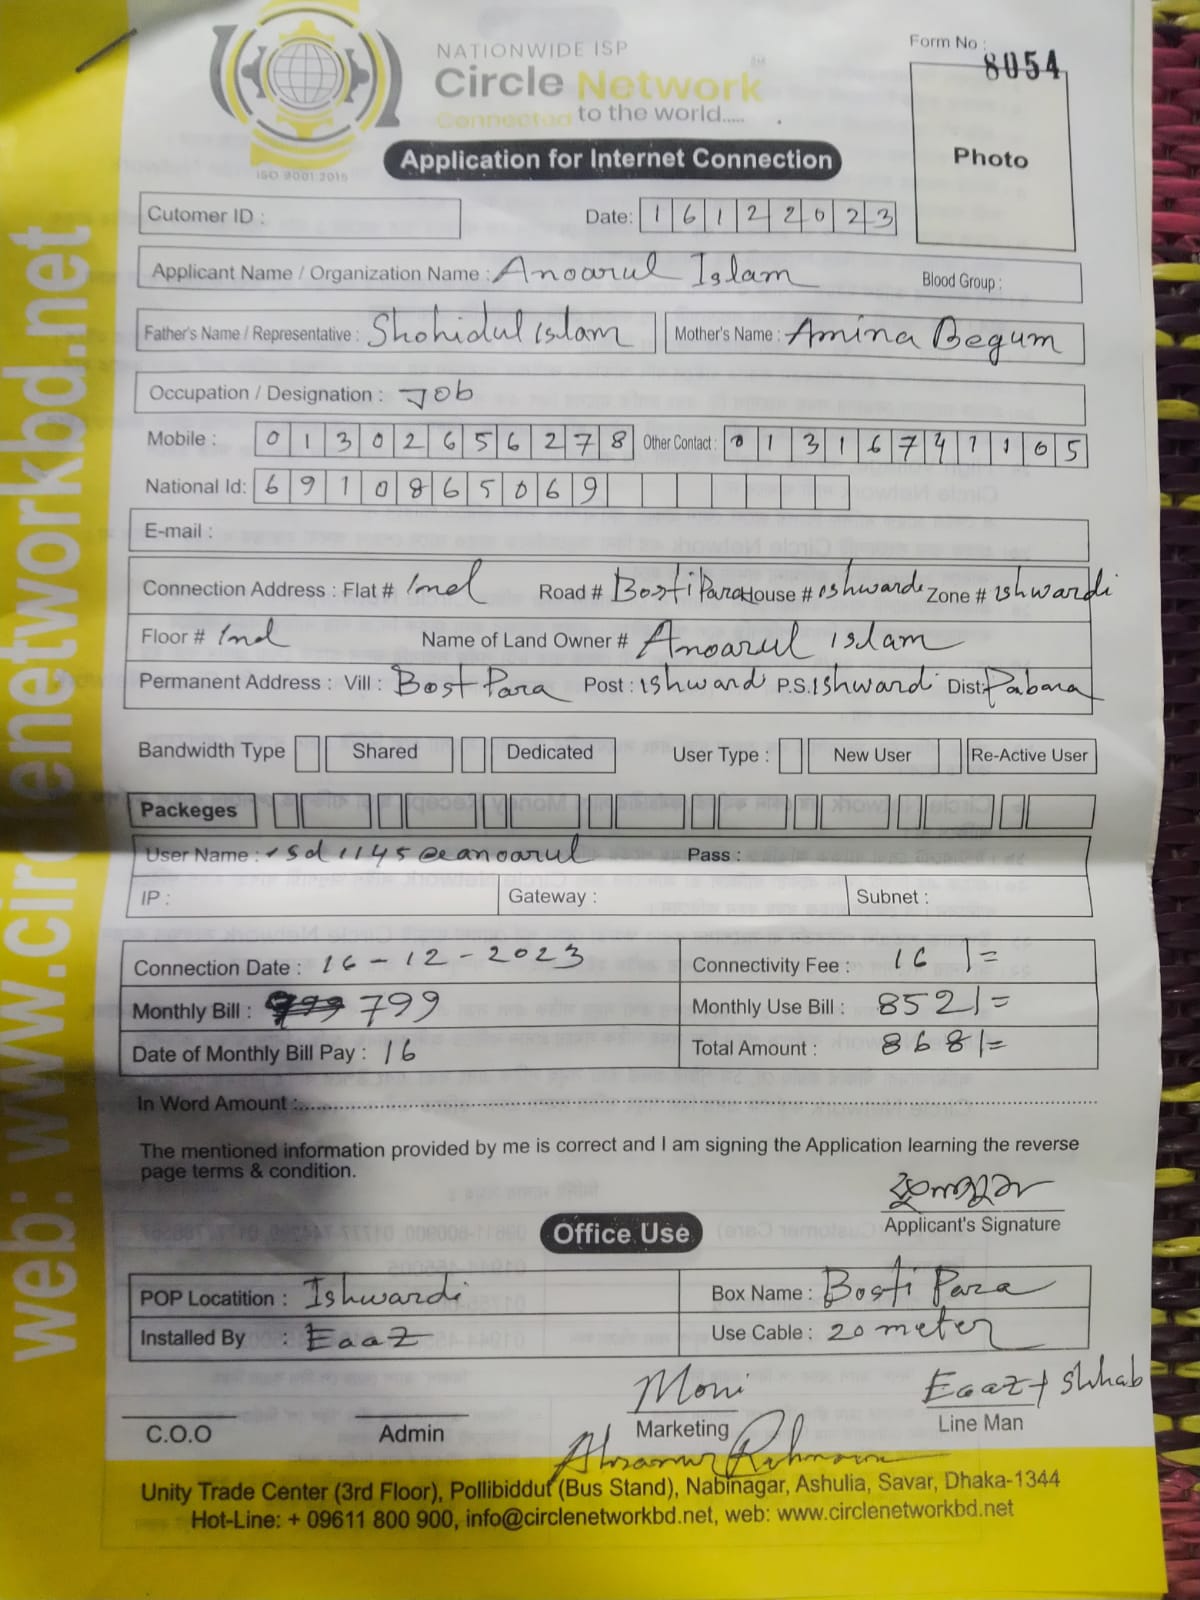 NATIONWIDE ISP
Circle Network
Connected to the world.....
ISO 9001:2015
Form No : 8054
Photo
Application for Internet Connection
Cutomer ID :
Date: 16122023
Applicant Name / Organization Name : Anoarul Islam Blood Group :
Father's Name / Representative : Shohidul islam Mother's Name : Amina Begum
Occupation / Designation : Job
Mobile : 01302656278 Other Contact : 01316741105
National Id: 6910865069
E-mail :
Connection Address : Flat # Ind Road # Bosti Para House # ishwardi Zone # ishwardi
Floor # Ind Name of Land Owner # Anoarul islam
Permanent Address : Vill : Bost Para Post : ishwardi P.S. Ishwardi Dist: Pabana
Bandwidth Type Shared Dedicated User Type : New User Re-Active User
Packeges
User Name : isd1145@anoarul Pass :
IP : Gateway : Subnet :
Connection Date : 16-12-2023 Connectivity Fee : 16 /=
Monthly Bill : 799 Monthly Use Bill : 852/=
Date of Monthly Bill Pay : 16 Total Amount : 868/=
In Word Amount :
The mentioned information provided by me is correct and I am signing the Application learning the reverse
page terms & condition.
Applicant's Signature
Office Use
POP Locatition : Ishwardi Box Name : Bosti Para
Installed By : Eaaz Use Cable : 20 meter
Moni Eaaz + Shihab
C.O.O Admin Marketing Line Man
Unity Trade Center (3rd Floor), Pollibiddut (Bus Stand), Nabinagar, Ashulia, Savar, Dhaka-1344
Hot-Line: + 09611 800 900, info@circlenetworkbd.net, web: www.circlenetworkbd.net
web: www.circlenetworkbd.net